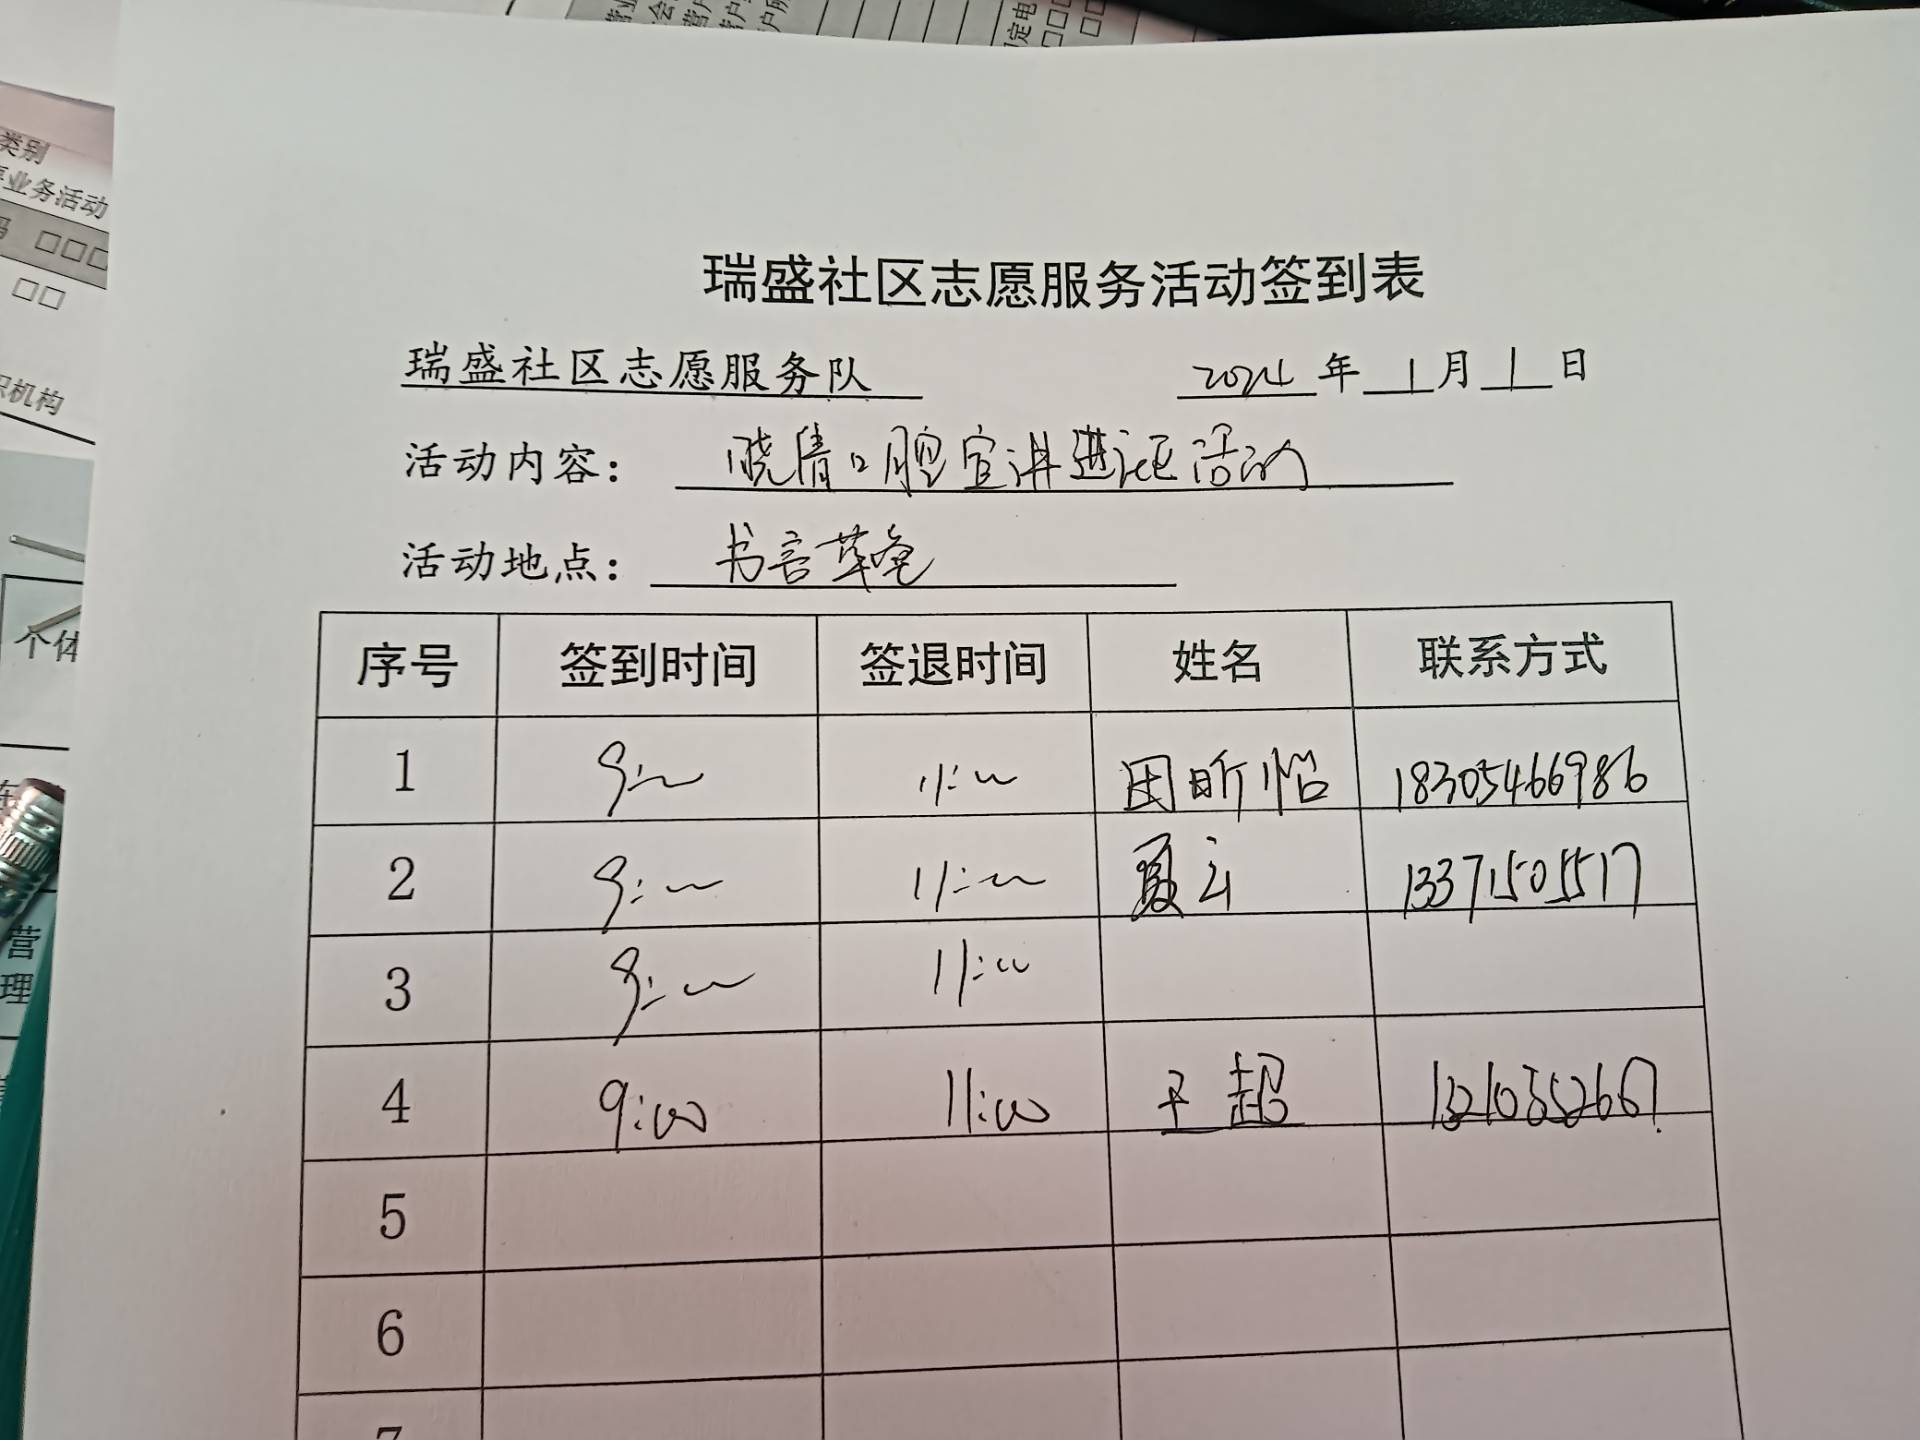 类别
业务活动
机构
个体
营
理
瑞盛社区志愿服务活动签到表
瑞盛社区志愿服务队 2024 年 1 月 1 日
活动内容： 晓倩口腔宣讲进社区活动
活动地点： 书香草庵
序号 签到时间 签退时间 姓名 联系方式
1 9:00 11:00 田昕怡 18305466986
2 9:00 11:00 夏云 13371505517
3 9:00 11:00
4 9:00 11:00 王超
5
6
7